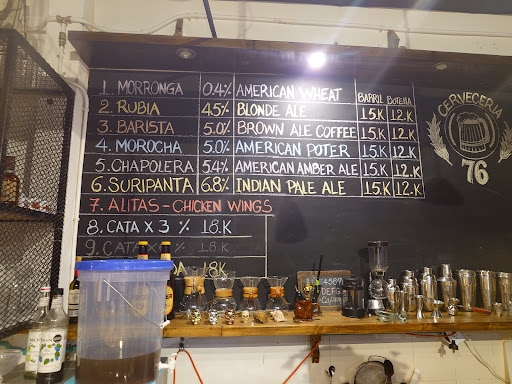 BARRIL BOTELLA
1. MORRONGA 0.4% AMERICAN WHEAT 15.K 12.K
2. RUBIA 4.5% BLONDE ALE 15.K 12.K
3. BARISTA 5.0% BROWN ALE COFFEE 15.K 12.K
4. MOROCHA 5.0% AMERICAN POTER 15.K 12.K
5. CHAPOLERA 5.4% AMERICAN AMBER ALE 15.K 12.K
6. SURIPANTA 6.8% INDIAN PALE ALE 15.K 12.K
7. ALITAS - CHICKEN WINGS
8. CATA X 3 % 18.K
9. CATA X % 18.K
18K
CERVECERIA
76
MONIN